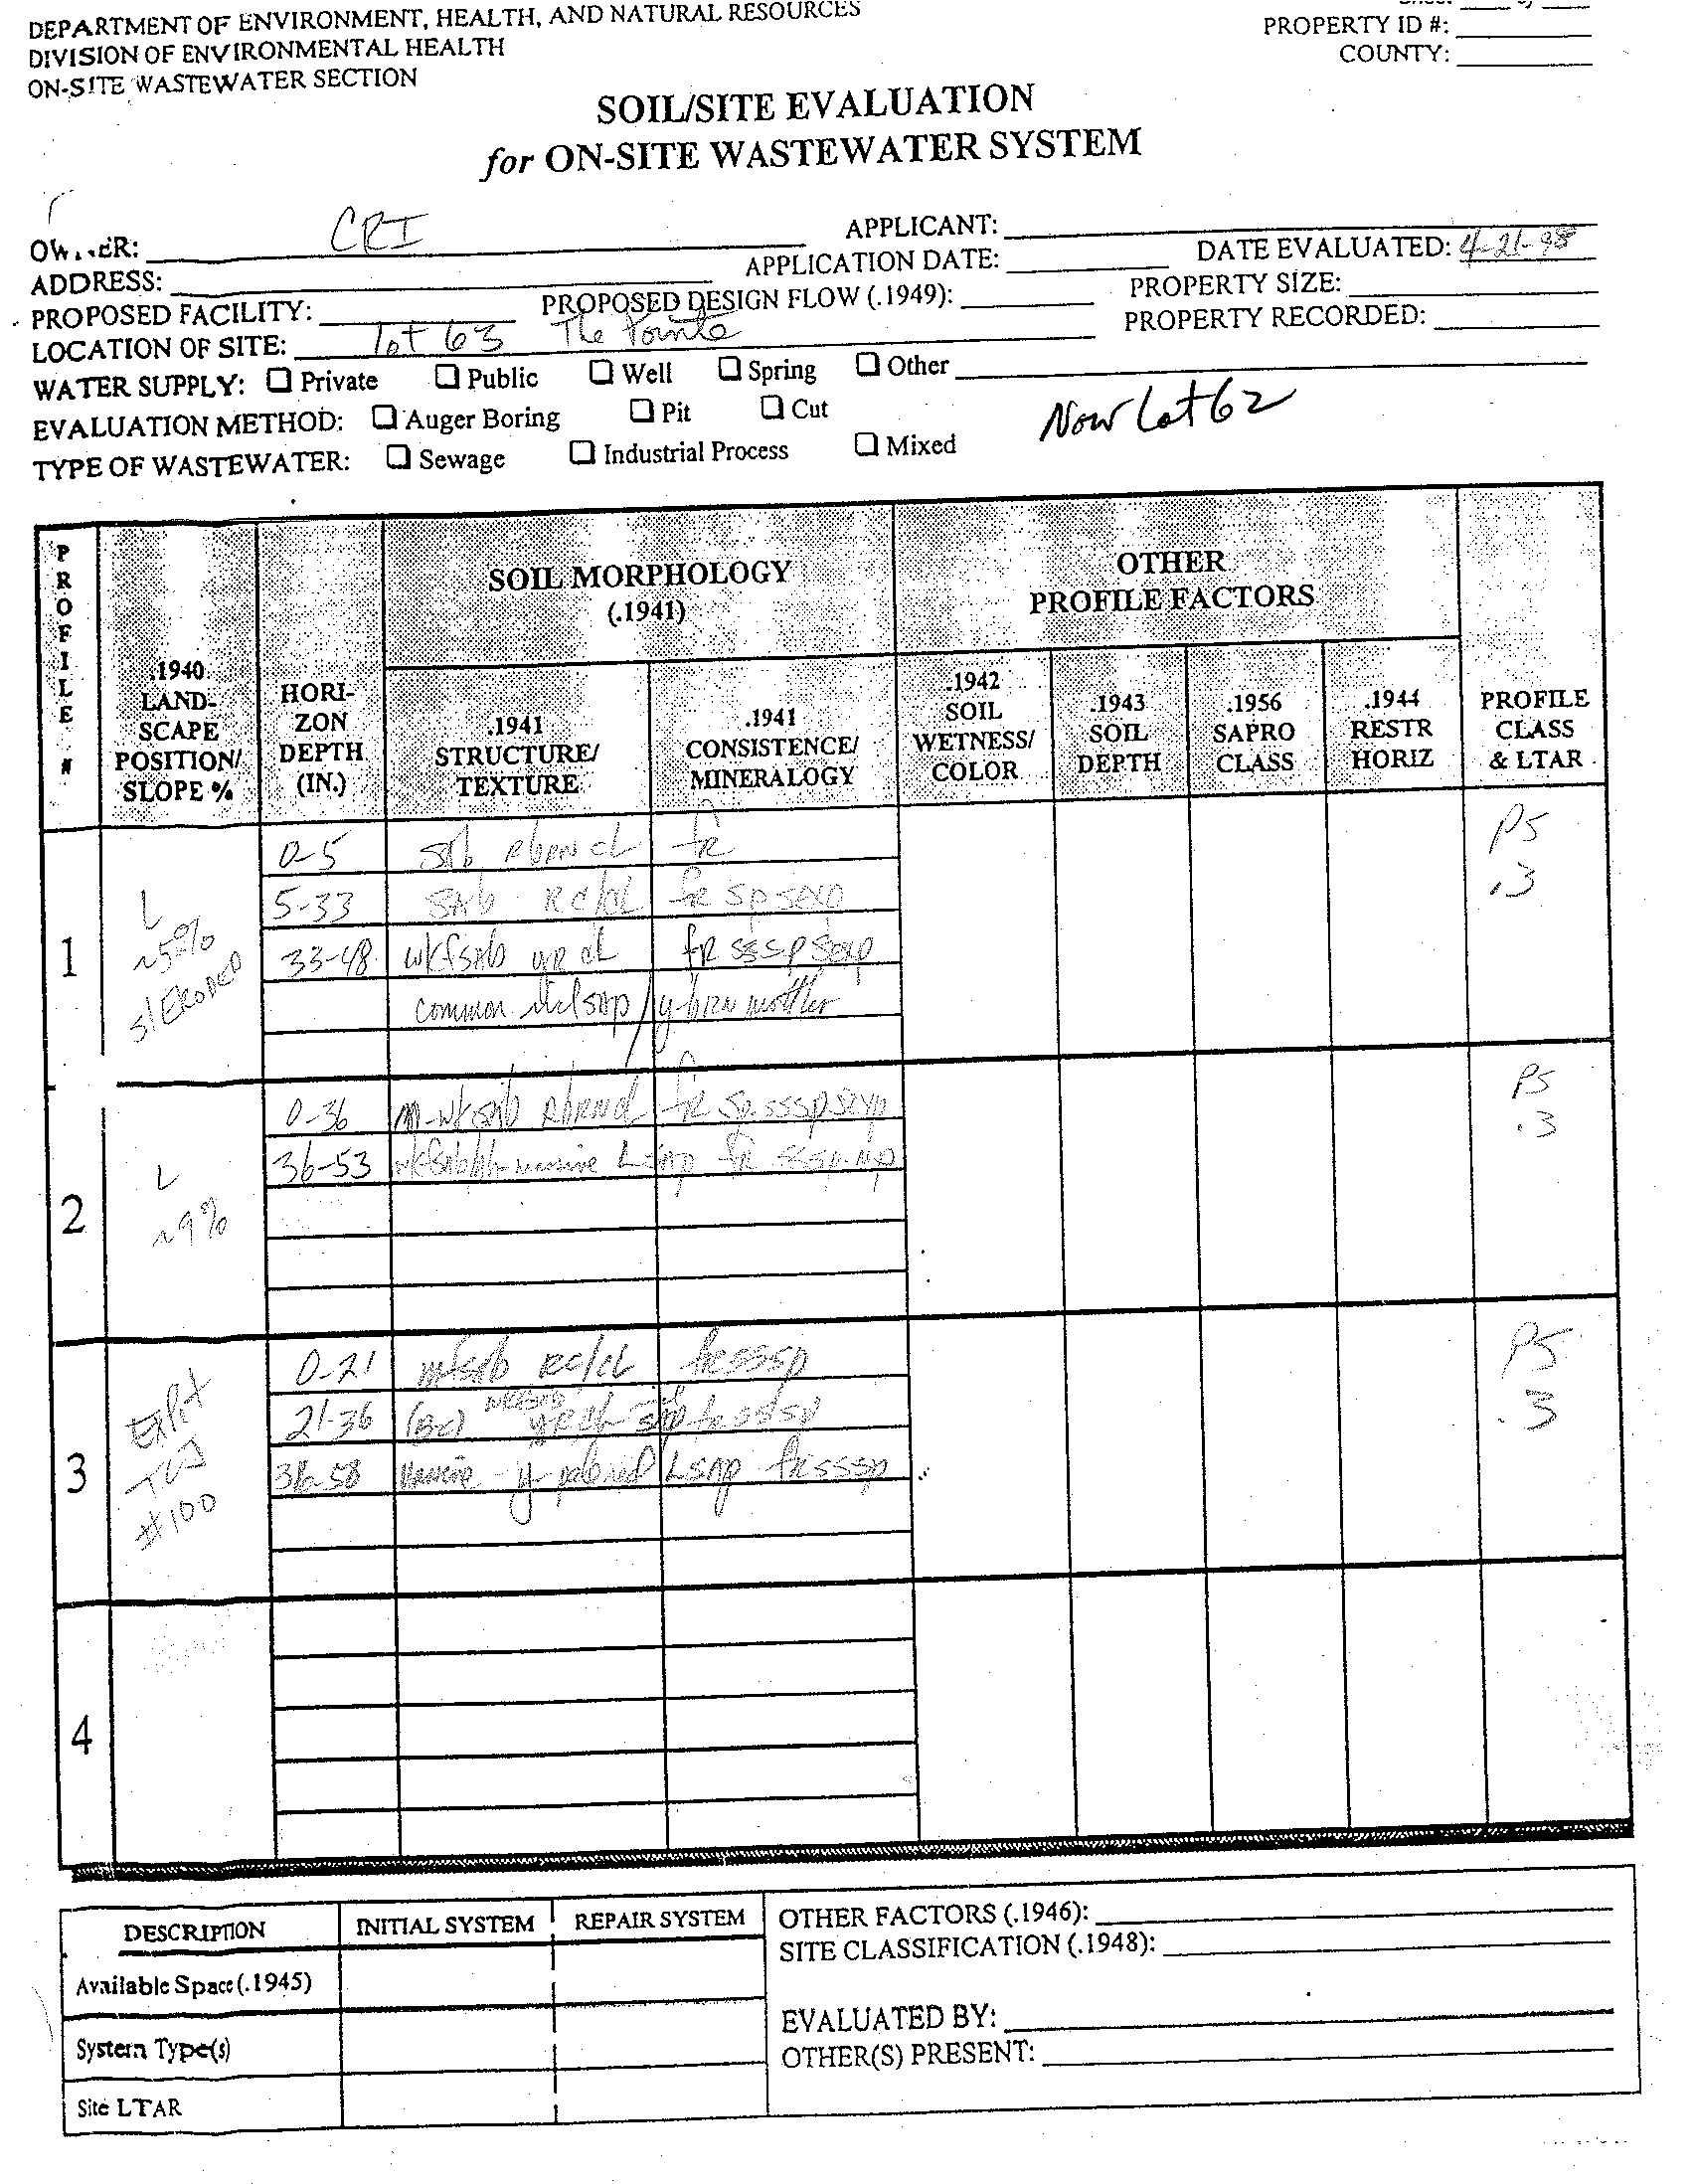 DEPARTMENT OF ENVIRONMENT, HEALTH, AND NATURAL RESOURCES
DIVISION OF ENVIRONMENTAL HEALTH
ON-SITE WASTEWATER SECTION
PROPERTY ID #:
COUNTY:
SOIL/SITE EVALUATION
for ON-SITE WASTEWATER SYSTEM
OWNER: CRI
APPLICANT:
ADDRESS:
APPLICATION DATE:
DATE EVALUATED: 4-21-98
PROPOSED FACILITY:
PROPOSED DESIGN FLOW (.1949):
PROPERTY SIZE:
LOCATION OF SITE: lot 63 The Pointe
PROPERTY RECORDED:
WATER SUPPLY: ☐ Private ☐ Public ☐ Well ☐ Spring ☐ Other
EVALUATION METHOD: ☐ Auger Boring ☐ Pit ☐ Cut
Now Lot 62
TYPE OF WASTEWATER: ☐ Sewage ☐ Industrial Process ☐ Mixed
PROFILE #
.1940 LAND-SCAPE POSITION/ SLOPE %
HORI-ZON DEPTH (IN.)
SOIL MORPHOLOGY (.1941)
.1941 STRUCTURE/ TEXTURE
.1941 CONSISTENCE/ MINERALOGY
OTHER PROFILE FACTORS
.1942 SOIL WETNESS/ COLOR
.1943 SOIL DEPTH
.1956 SAPRO CLASS
.1944 RESTR HORIZ
PROFILE CLASS & LTAR
1
L ~5% s/ERODED
0-5 fr
5-33 sab RC/CL fr
33-48 wkfsab yr cl fr
common
PS .3
2
L ~9%
0-36 fr
36-53
PS .3
3
TCJ #100
0-21 RC/CL fr sssp
21-36 (BC)
36-58 LSAP
PS .3
4
DESCRIPTION
INITIAL SYSTEM
REPAIR SYSTEM
Available Space (.1945)
System Type(s)
Site LTAR
OTHER FACTORS (.1946):
SITE CLASSIFICATION (.1948):
EVALUATED BY:
OTHER(S) PRESENT: